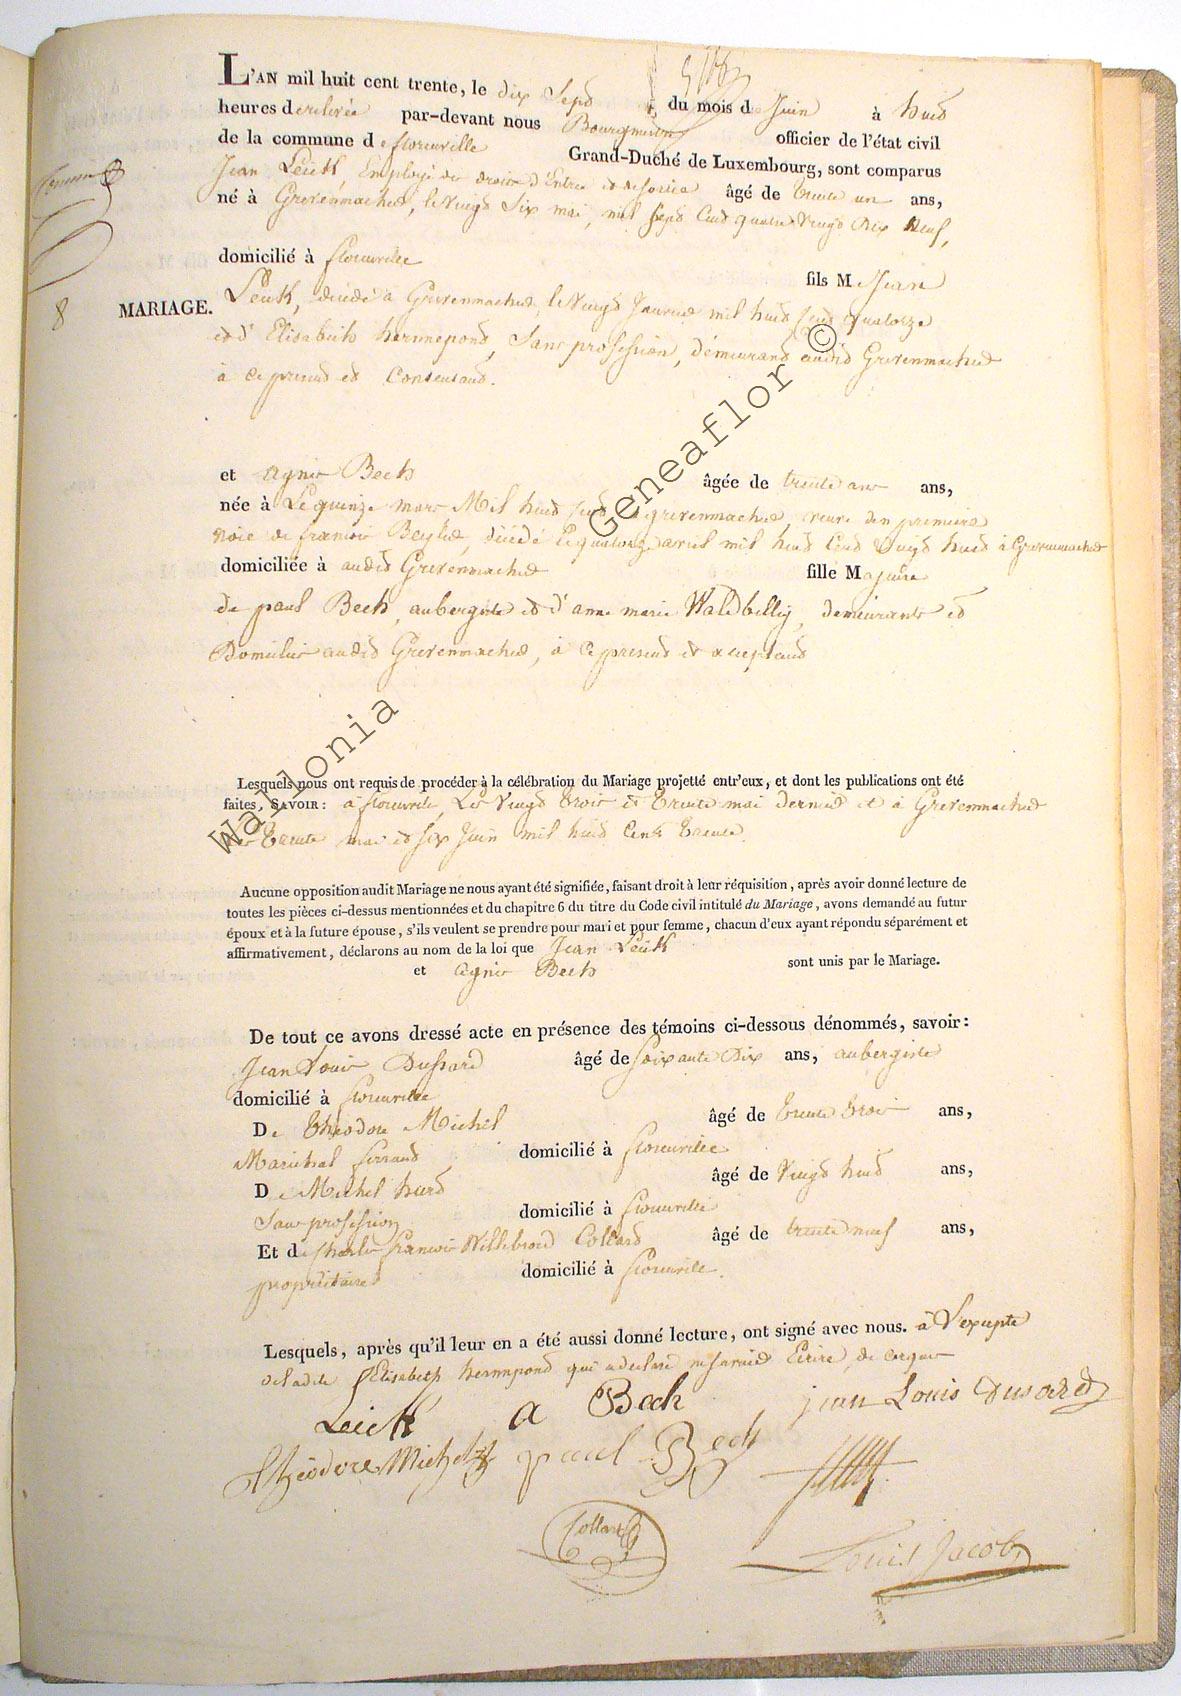 L'AN mil huit cent trente, le dix Sept du mois d Juin à huit
heures de relevée par-devant nous Bourgmestre officier de l'état civil
de la commune de florenville Grand-Duché de Luxembourg, sont comparus
Jean Leick Employé des droits d'Entrée et de sortie âgé de trente un ans,
né à Grevenmacher, le vingt Six mai, mil sept Cent quatre Vingt Dix Neuf,
domicilié à florenville
fils M Jean
8 MARIAGE. Leick, décédé à Grevenmacher, le Vingt Janvier mil huit Cent quatorze
et d'Elisabeth hermepond, Sans profession, démeurand audit Grevenmacher
à ce present et Consentand.
et agnes Bech âgée de trente ans ans,
née à Le quinze mars Mil huit Cent à grevenmacher, veuve den premiere
noce de francois decédé Le quatorze avril mil huit Cent Vingt huit à Grevenmacher
domiciliée à audit Grevenmacher fille Majeure
de paul Bech, aubergiste et d'anne marie Waldbillig, demeurants et
Domicilies audit Grevenmacher, à ce present et acceptand
Lesquels nous ont requis de procéder à la célébration du Mariage projetté entr'eux, et dont les publications ont été
faites, SAVOIR: à florenville, Les Vingt trois et trente mai dernier et à Grevenmacher
Les trente mai et six Juin mil huit Cent trente.
Aucune opposition audit Mariage ne nous ayant été signifiée, faisant droit à leur réquisition, après avoir donné lecture de
toutes les pièces ci-dessus mentionnées et du chapitre 6 du titre du Code civil intitulé du Mariage, avons demandé au futur
époux et à la future épouse, s'ils veulent se prendre pour mari et pour femme, chacun d'eux ayant répondu séparément et
affirmativement, déclarons au nom de la loi que Jean Leick
et agnes Bech sont unis par le Mariage.
De tout ce avons dressé acte en présence des témoins ci-dessous dénommés, savoir:
Jean Louis Dussard âgé de Soixante Dix ans, aubergiste
domicilié à florenville
De théodore Michel âgé de trente trois ans,
Marechal ferrand domicilié à florenville
De Michel hurt âgé de Vingt huit ans,
Sans profession domicilié à florenville
Et de Charles francois Willebrord Collard âgé de trente neuf ans,
propriétaire domicilié à florenville.
Lesquels, après qu'il leur en a été aussi donné lecture, ont signé avec nous. à L'exepte
de ladite Elisabeth hermepond qui a declaré ne savoir Ecrire, de ce
Leick a Bech jean Louis Dusard
théodore Michel paul Bech
Collard
Louis Jacob
Wallonia Geneaflor ©